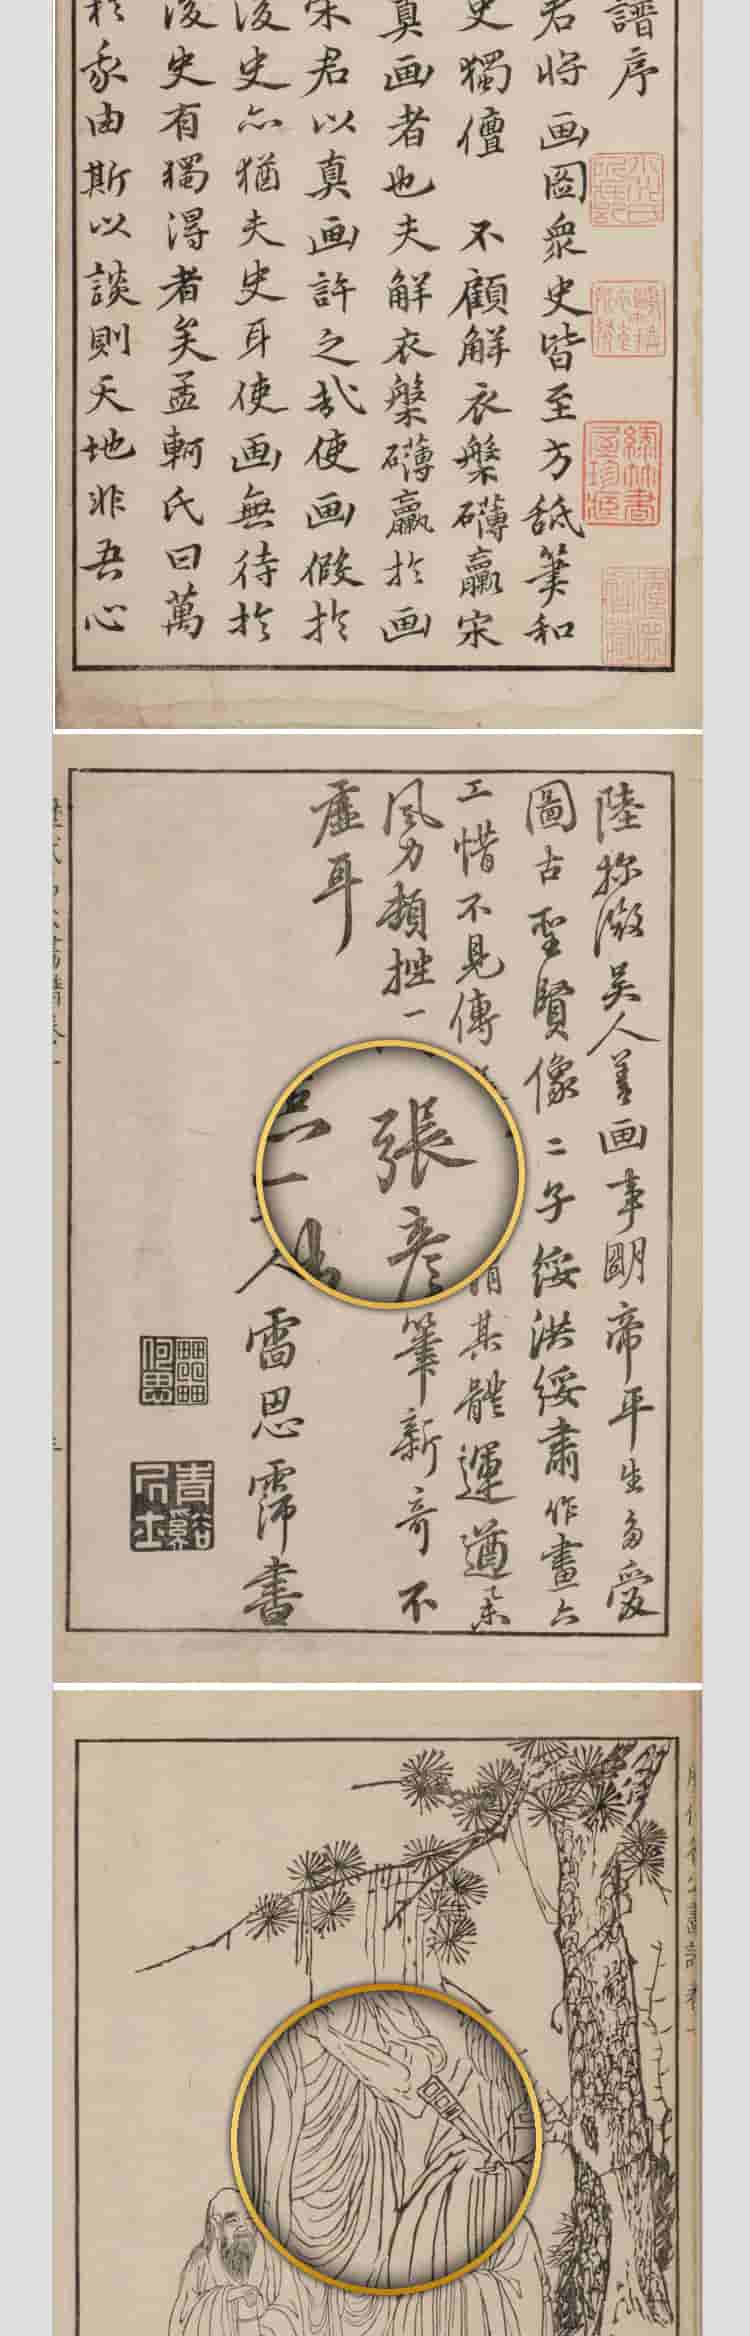 譜序
君將画圖衆史皆至方舐筆和
史獨儃 不顧解衣槃礴臝宋
真画者也夫解衣槃礴臝於画
宋君以真画許之哉使画假於
後史亦猶夫史耳使画無待於
後史有獨淂者矣孟軻氏曰萬
於我由斯以談則天地非吾心
陸探微吳人善画事明帝平生多愛
圖古聖賢像二子綏洪綏肅作畫六
工惜不見傳 其體運遒
風力頓挫一 張彥 筆新奇不
虛耳
一 人雷思霈書